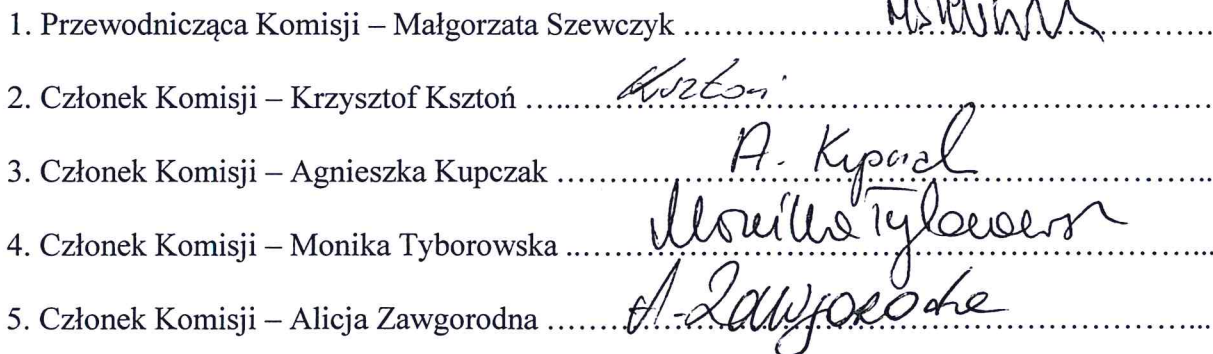 1. Przewodnicząca Komisji – Małgorzata Szewczyk ……………………………………………..
2. Członek Komisji – Krzysztof Ksztoń …..… Ksztoń ……………………………………
3. Członek Komisji – Agnieszka Kupczak ………… A. Kupczak ………………..
4. Członek Komisji – Monika Tyborowska ..…… Monika Tyborowska …..
5. Członek Komisji – Alicja Zawgorodna …… A. Zawgorodna ………………...